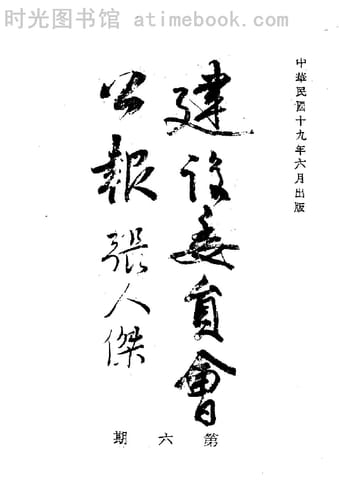 时光图书馆 www.atimebook.com
中華民國十九年六月出版
建设委員會
公報
張人傑
第六期